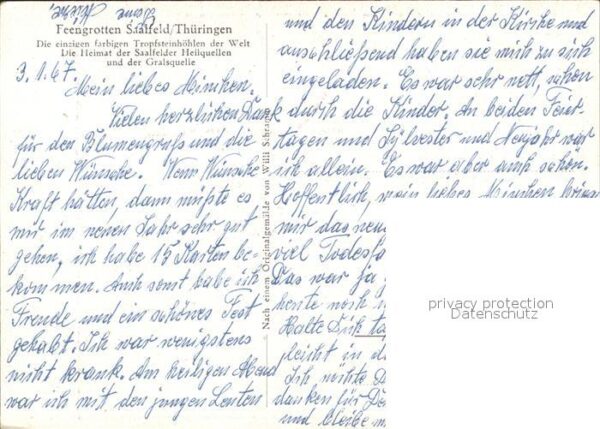 Feengrotten Saalfeld/Thüringen
Die einzigen farbigen Tropfsteinhöhlen der Welt
Die Heimat der Saalfelder Heilquellen
und der Gralsquelle
3.1.67.
Mein liebes Minchen.
Vielen herzlichen Dank
für den Blumengruß und die
lieben Wünsche. Wenn Wünsche
Kraft hätten, dann müßte es
mir im neuen Jahr sehr gut
gehen, ich habe 15 Karten be-
kommen. Auch sonst habe ich
Freude und ein schönes Fest
gehabt. Ich war wenigstens
nicht krank. Am heiligen Abend
war ich mit den jungen Leuten
Nach einem Originalgemälde von Willi
und den Kindern in der Kirche und
anschließend haben sie mich zu sich
eingeladen. Es war sehr nett, schon
durch die Kinder. An beiden Feier-
tagen und Sylvester und Neujahr war
ich allein. Es war aber auch schön.
Hoffentlich, mein liebes Minchen
mir das neu
viel Todesfa
Das war ja
heute noch
Halte Dich
leicht in d
Ich möchte D
danken für De
und bleibe m
privacy protection
Datenschutz